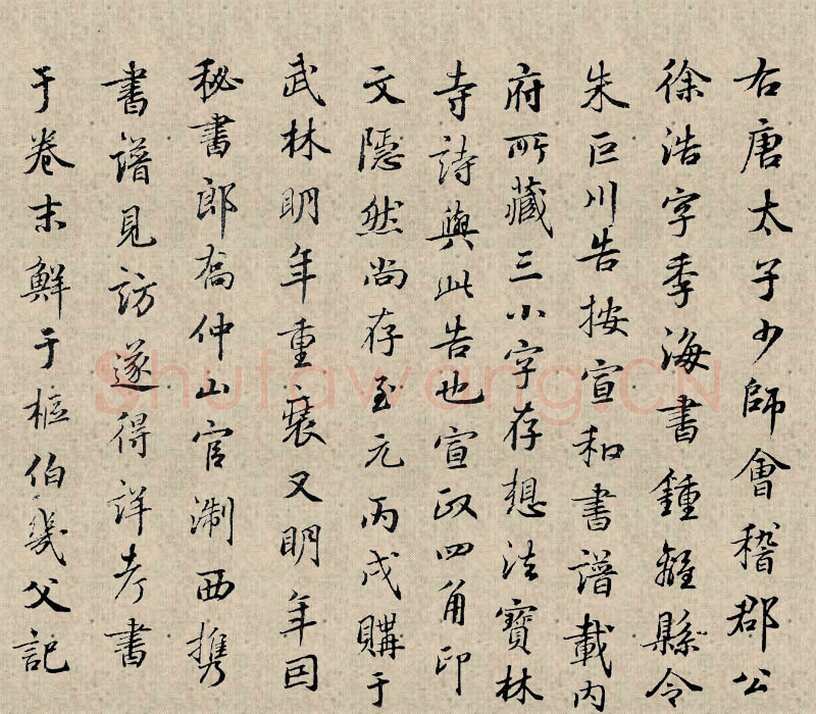 右唐太子少師會稽郡公
徐浩字季海書鍾離縣令
朱巨川告按宣和書譜載内
府所藏三小字存想法寶林
寺詩與此告也宣政四角印
文隱然尚存至元丙戌購于
武林明年重裝又明年因
秘書郎喬仲山官淛西携
書譜見訪遂得詳考書
于卷末鮮于樞伯幾父記
Shufawang.CN